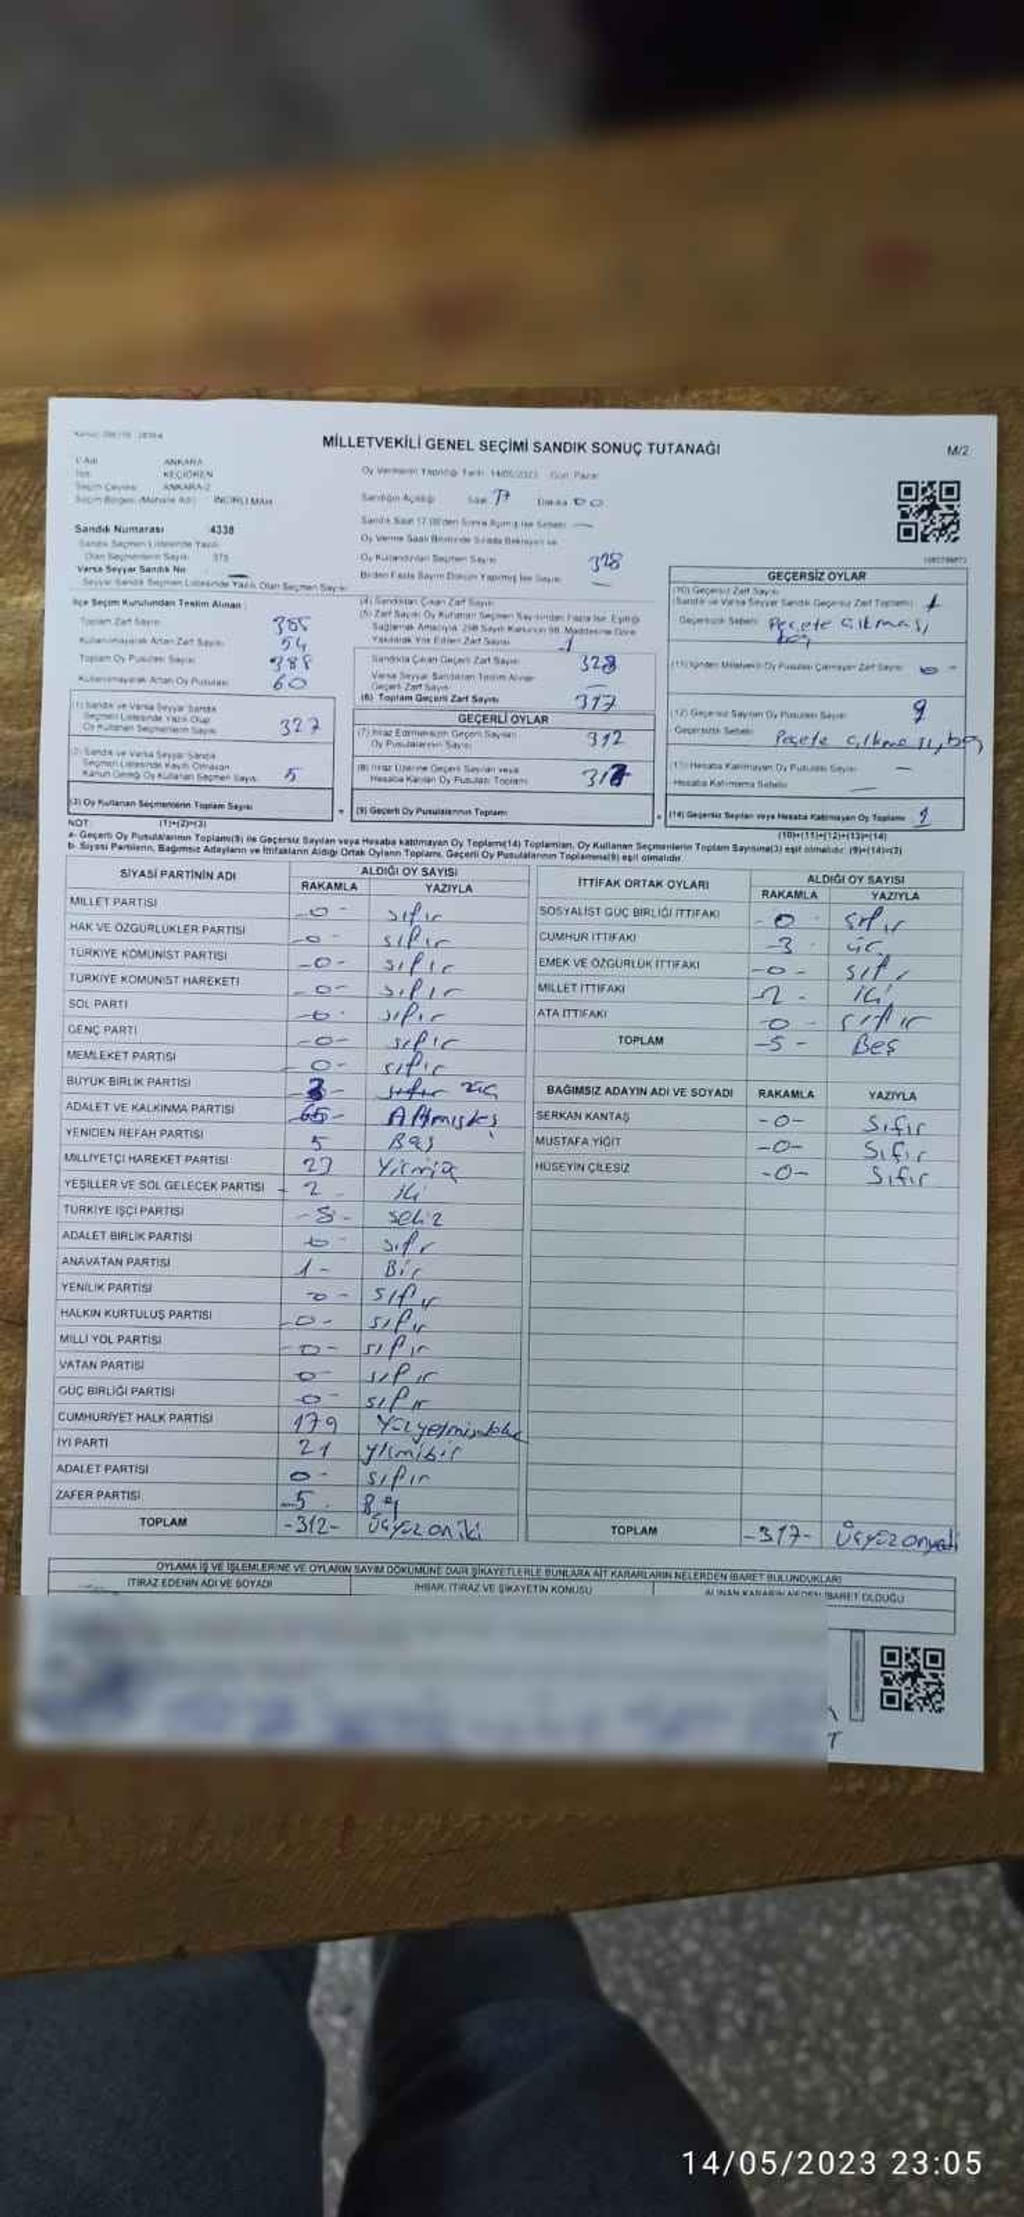 MİLLETVEKİLİ GENEL SEÇİMİ SANDIK SONUÇ TUTANAĞI
M/2
İl Adı ANKARA
KEÇİÖREN
Seçim Çevresi ANKARA-2
Seçim Bölgesi (Mahalle Adı) İNCİRLİ MAH
Oy Vermenin Yapıldığı Tarih 14/05/2023 Gün Pazar
Sandığın Açıldığı Saat 17 Dakika 00
Sandık Numarası 4338
Sandık Seçmen Listesinde Yazılı
Olan Seçmenlerin Sayısı 375
Varsa Seyyar Sandık No
Seyyar Sandık Seçmen Listesinde Yazılı Olan Seçmen Sayısı
Oy Kullandırılan Seçmen Sayısı 328
Birden Fazla Sayım Döküm Yapılmış İse Sayısı —
İlçe Seçim Kurulundan Teslim Alınan
Toplam Zarf Sayısı
Kullanılmayarak Artan Zarf Sayısı 54
Toplam Oy Pusulası Sayısı
Kullanılmayarak Artan Oy Pusulası 60
(1) Sandık ve Varsa Seyyar Sandık
Seçmen Listesinde Yazılı Olup
Oy Kullanan Seçmenlerin Sayısı 327
(2) Sandık ve Varsa Seyyar Sandık
Seçmen Listesinde Kayıtlı Olmayan
Kanun Gereği Oy Kullanan Seçmen Sayısı 5
(3) Oy Kullanan Seçmenlerin Toplam Sayısı
(4) Sandıktan Çıkan Zarf Sayısı
(5) Zarf Sayısı Oy Kullanan Seçmen Sayısından Fazla İse, Eşitliği
Sağlamak Amacıyla 298 Sayılı Kanunun 98. Maddesine Göre
Yakılarak Yok Edilen Zarf Sayısı
Sandıkta Çıkan Geçerli Zarf Sayısı 328
Varsa Seyyar Sandıktan Teslim Alınan
Geçerli Zarf Sayısı —
(6) Toplam Geçerli Zarf Sayısı 317
GEÇERLİ OYLAR
(7) İtiraz Edilmeksizin Geçerli Sayılan
Oy Pusulalarının Sayısı 312
(8) İtiraz Üzerine Geçerli Sayılan veya
Hesaba Katılan Oy Pusulası Toplamı 317
(9) Geçerli Oy Pusulalarının Toplamı
GEÇERSİZ OYLAR
(10) Geçersiz Zarf Sayısı
(Sandık ve Varsa Seyyar Sandık Geçersiz Zarf Toplamı) 1
Geçersizlik Sebebi Peçete çıkması,
boş
(11) İçinden Milletvekili Oy Pusulası Çıkmayan Zarf Sayısı 0 -
(12) Geçersiz Sayılan Oy Pusulası Sayısı 9
Geçersizlik Sebebi Peçete çıkması, boş
(13) Hesaba Katılmayan Oy Pusulası Sayısı —
Hesaba Katılmama Sebebi —
(14) Geçersiz Sayılan veya Hesaba Katılmayan Oy Toplamı
NOT: (1)+(2)=(3)
(10)+(11)+(12)+(13)=(14)
a- Geçerli Oy Pusulalarının Toplamı(9) ile Geçersiz Sayılan veya Hesaba katılmayan Oy Toplamı(14) Toplamları, Oy Kullanan Seçmenlerin Toplam Sayısına(3) eşit olmalıdır. (9)+(14)=(3)
b- Siyasi Partilerin, Bağımsız Adayların ve İttifakların Aldığı Ortak Oyların Toplamı, Geçerli Oy Pusulalarının Toplamına(9) eşit olmalıdır.
SİYASİ PARTİNİN ADI ALDIĞI OY SAYISI
RAKAMLA YAZIYLA
MİLLET PARTİSİ -0- sıfır
HAK VE ÖZGÜRLÜKLER PARTİSİ -0- sıfır
TÜRKİYE KOMÜNİST PARTİSİ -0- sıfır
TÜRKİYE KOMÜNİST HAREKETİ -0- sıfır
SOL PARTİ -0- sıfır
GENÇ PARTİ -0- sıfır
MEMLEKET PARTİSİ 0- sıfır
BÜYÜK BİRLİK PARTİSİ 3- üç
ADALET VE KALKINMA PARTİSİ 65- Altmışbeş
YENİDEN REFAH PARTİSİ 5 Beş
MİLLİYETÇİ HAREKET PARTİSİ 23 Yirmiüç
YEŞİLLER VE SOL GELECEK PARTİSİ - 2 iki
TÜRKİYE İŞÇİ PARTİSİ -8- sekiz
ADALET BİRLİK PARTİSİ 0- sıfır
ANAVATAN PARTİSİ 1- Bir
YENİLİK PARTİSİ -0- sıfır
HALKIN KURTULUŞ PARTİSİ -0- sıfır
MİLLİ YOL PARTİSİ -0- sıfır
VATAN PARTİSİ 0- sıfır
GÜÇ BİRLİĞİ PARTİSİ -0- sıfır
CUMHURİYET HALK PARTİSİ 179 Yüzyetmişdokuz
İYİ PARTİ 21 yirmibir
ADALET PARTİSİ 0- sıfır
ZAFER PARTİSİ -5. Beş
TOPLAM -312- üçyüzoniki
İTTİFAK ORTAK OYLARI ALDIĞI OY SAYISI
RAKAMLA YAZIYLA
SOSYALİST GÜÇ BİRLİĞİ İTTİFAKI -0- sıfır
CUMHUR İTTİFAKI -3- üç
EMEK VE ÖZGÜRLÜK İTTİFAKI -0- sıfır
MİLLET İTTİFAKI -2- iki
ATA İTTİFAKI -0- sıfır
TOPLAM -5- Beş
BAĞIMSIZ ADAYIN ADI VE SOYADI RAKAMLA YAZIYLA
SERKAN KANTAŞ -0- Sıfır
MUSTAFA YİĞİT -0- Sıfır
HÜSEYİN ÇİLESİZ -0- Sıfır
TOPLAM -317- üçyüzonyedi
OYLAMA İŞ VE İŞLEMLERİNE VE OYLARIN SAYIM DÖKÜMÜNE DAİR ŞİKAYETLERLE BUNLARA AİT KARARLARIN NELERDEN İBARET BULUNDUKLARI
İTİRAZ EDENİN ADI VE SOYADI
İHBAR, İTİRAZ VE ŞİKAYETİN KONUSU
ALINAN KARARIN NEDEN İBARET OLDUĞU
14/05/2023 23:05